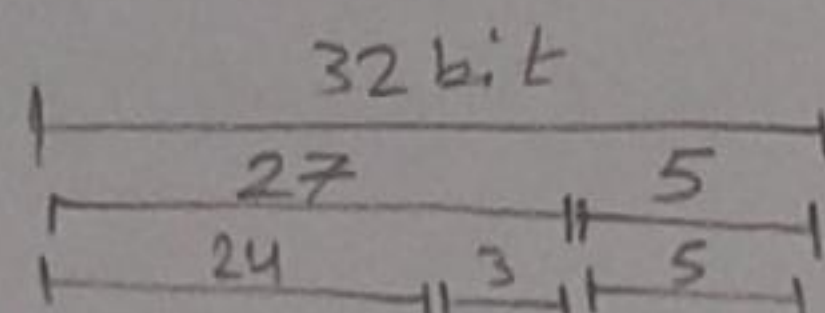 32 bit
27 5
24 3 5